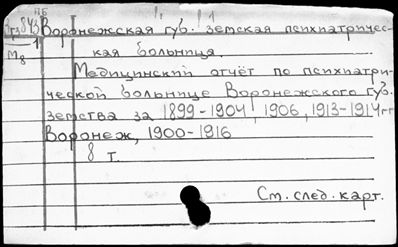 ПБ
Воронежская губ. земская психиатричес-
М8 1 кая больница.
Медицинский отчёт по психиатри-
ческой больнице Воронежского губ.
земства за 1899-1904, 1906, 1913-1914гг
Воронеж, 1900-1916
8 т.
См. след. карт.